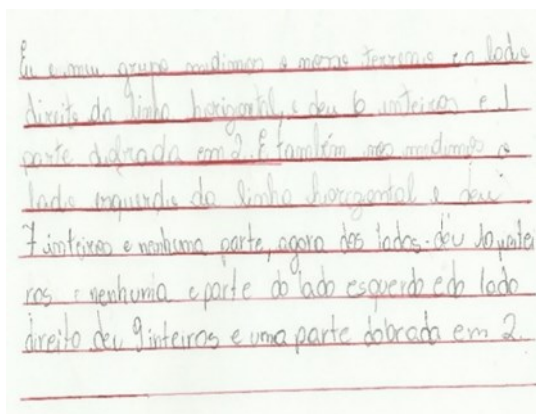 Eu e meu grupo medimos o mesmo terreno eo lado
direito da linha horizontal, e deu 6 inteiros e 1
parte dobrada em 2. E também nós medimos o
lado esquerdo da linha horizontal e deu
7 inteiros e nenhuma parte, agora dos lados. deu 10 intei
ros e nenhuma e parte do lado esquerdo e do lado
direito deu 9 inteiros e uma parte dobrada em 2.